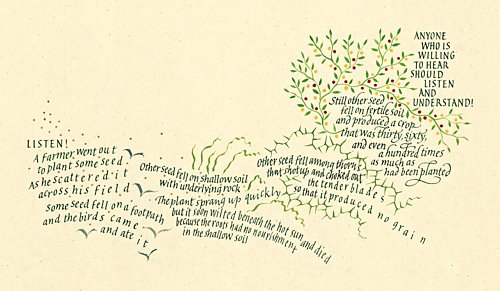 LISTEN!
A farmer went out
to plant some seed.
As he scattered it
across his field
some seed fell on a footpath
and the birds came
and ate it
Other seed fell on shallow soil
with underlying rock
The plant sprang up quickly
but it soon wilted beneath the hot sun and died
because the roots had no nourishment
in the shallow soil
Other seed fell among thorns
that shot up and choked out
the tender blades
so that it produced no grain
Still other seed
fell on fertile soil
and produced a crop
that was thirty, sixty,
and even a hundred times
as much as
had been planted
ANYONE
WHO IS
WILLING
TO HEAR
SHOULD
LISTEN
AND
UNDERSTAND!